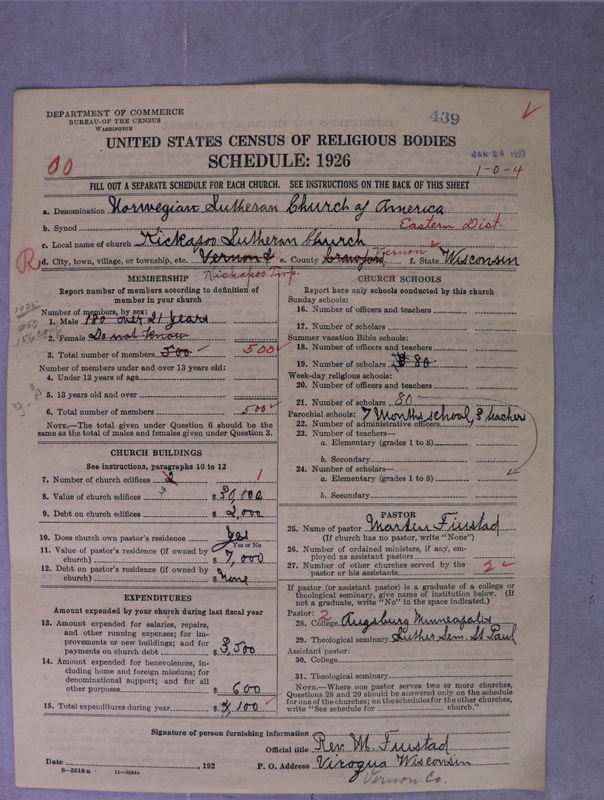 DEPARTMENT OF COMMERCE
BUREAU OF THE CENSUS
WASHINGTON
439
UNITED STATES CENSUS OF RELIGIOUS BODIES
SCHEDULE: 1926
JAN 24 1927
00
1-0-4
FILL OUT A SEPARATE SCHEDULE FOR EACH CHURCH. SEE INSTRUCTIONS ON THE BACK OF THIS SHEET
a. Denomination Norwegian Lutheran Church of America
b. Synod Eastern Dist.
c. Local name of church Kickapoo Lutheran Church
R d. City, town, village, or township, etc. Vernon & e. County Crawford Vernon f. State Wisconsin
Kickapoo Twp.
MEMBERSHIP
Report number of members according to definition of member in your church
Number of members, by sex:
1. Male 180 over 21 years
2. Female Do not know
3. Total number of members 500 500
Number of members under and over 13 years old:
4. Under 13 years of age
5. 13 years old and over
6. Total number of members 500
NOTE.—The total given under Question 6 should be the
same as the total of males and females given under Question 3.
CHURCH BUILDINGS
See instructions, paragraphs 10 to 12
7. Number of church edifices 1
8. Value of church edifices $
9. Debt on church edifices $ 2,000
10. Does church own pastor's residence Yes
Yes or No
11. Value of pastor's residence (if owned by
church) $ 7,000
12. Debt on pastor's residence (if owned by
church) $ None
EXPENDITURES
Amount expended by your church during last fiscal year
13. Amount expended for salaries, repairs,
and other running expenses; for im-
provements or new buildings; and for
payments on church debt $ 3,500
14. Amount expended for benevolences, in-
cluding home and foreign missions; for
denominational support; and for all
other purposes $ 600
15. Total expenditures during year $ 4,100
CHURCH SCHOOLS
Report here only schools conducted by this church
Sunday schools:
16. Number of officers and teachers
17. Number of scholars
Summer vacation Bible schools:
18. Number of officers and teachers
19. Number of scholars 80
Week-day religious schools:
20. Number of officers and teachers
21. Number of scholars 80
Parochial schools: 7 months school, 3 teachers
22. Number of administrative officers
23. Number of teachers—
a. Elementary (grades 1 to 8)
b. Secondary
24. Number of scholars—
a. Elementary (grades 1 to 8)
b. Secondary
PASTOR
25. Name of pastor
(If church has no pastor, write "None")
26. Number of ordained ministers, if any, em-
ployed as assistant pastors
27. Number of other churches served by the
pastor or his assistants 2
If pastor (or assistant pastor) is a graduate of a college or
theological seminary, give name of institution below. (If
not a graduate, write "No" in the space indicated.)
Pastor: 2
28. College Augsburg Minneapolis
29. Theological seminary Luther Sem. St Paul
Assistant pastor:
30. College
31. Theological seminary
NOTE.—Where one pastor serves two or more churches,
Questions 28 and 29 should be answered only on the schedule
for one of the churches; on the schedules for the other churches,
write "See schedule for church."
Signature of person furnishing information
Official title Rev. M.
Date , 192 P. O. Address Viroqua Wisconsin
Vernon Co.
8-5518a